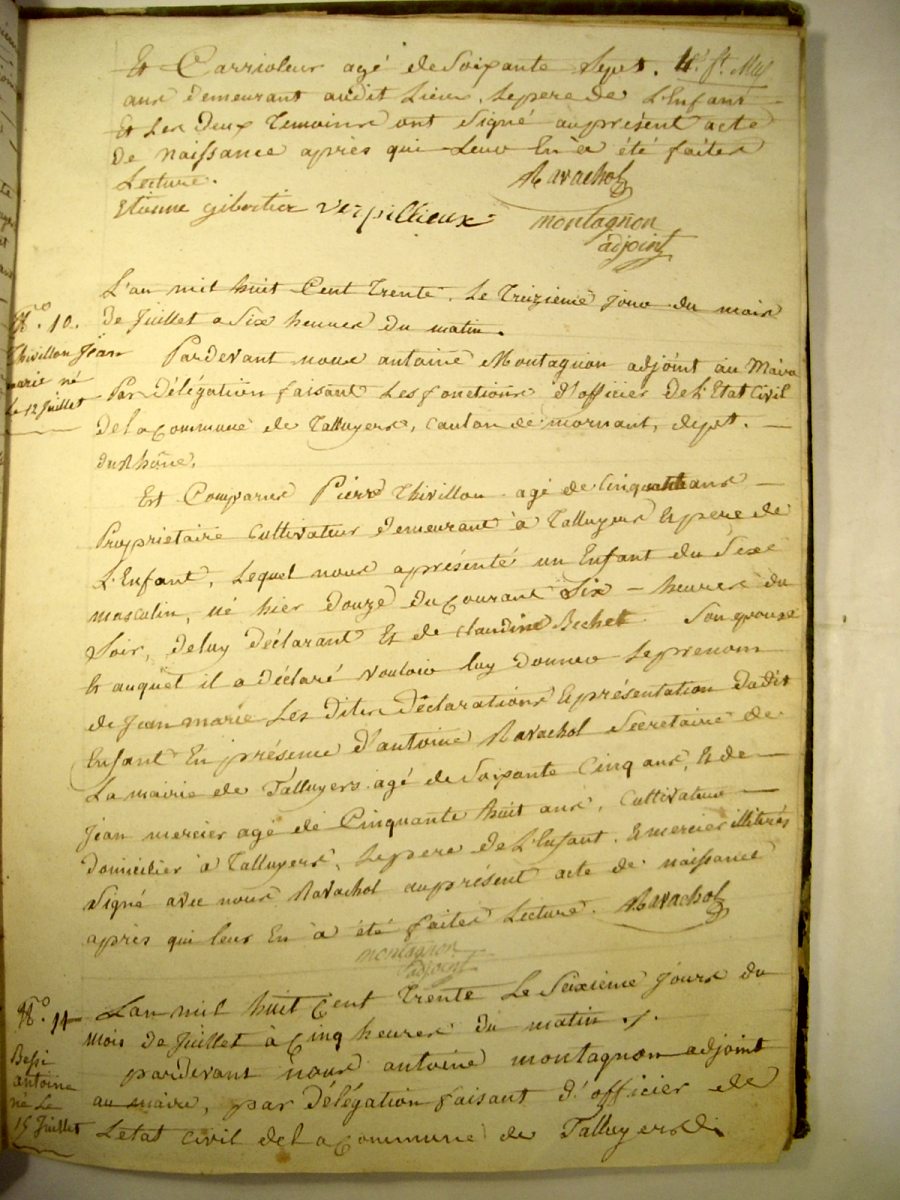 Et Carrioleur agé de Soixante Sept.
ans demeurant audit Lieu, Le pere de L'Enfant
Et Les Deux Temoins ont Signé au présent acte
De Naissance après que Leur En a été faites
Lecture.
Ravachol
Etienne gibertier verpillieux
montagnon
adjoint
L'an mil huit Cent Trente, Le Treizieme jour du mois
De Juillet a Six heures du matin.
N.º 10.
Thivillon Jean
marie né
Le 12 Juillet
Pardevant nous antoine Montagnon adjoint au Maire
Par Délégation faisant Les fonctions d'officier de L'Etat Civil
de la Commune de Talluyers, canton de mornant, dept.
du Rhône.
Est Comparus Pierre Thivillon agé de Cinquante ans
Propriétaire Cultivateur demeurant à Talluyers Le pere de
L'Enfant, Lequel nous a présenté un Enfant du Sexe
masculin, né hier douze du Courant Six heures du
Soir, de luy Déclarant Et de Claudine Bechet Son epouse
Et auquel il a déclaré vouloir luy donner Le prenom
de Jean marie Les dites Déclarations Et présentation dudit
Enfant En présence d'antoine Ravachol Secretaire de
La mairie de Talluyers agé de Soixante Cinq ans, Et de
Jean mercier agé de Cinquante huit ans, Cultivateur
Domicilier à Talluyers, Le pere de L'Enfant, Et mercier illitérés
Signé avec nous Ravachol au présent acte de naissance
après qui leur En a été faites Lecture. Ravachol
montagnon
adjoint
N.º 11
Bessi
antoine
né Le
15 Juillet
L'an mil huit Cent Trente Le Seixieme jours du
Mois de Juillet à Cinq heures du matin ./.
pardevant nous antoine montagnon adjoint
au maire, par Délégation faisant d'officier de
L'etat Civil de la Commune de Talluyers